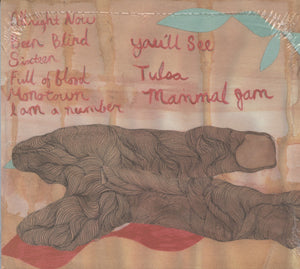 Alright Now
Been Blind
Sixteen
Full of Blood
Monotown
I am a number
you'll See
Tulsa
Mammal Jam